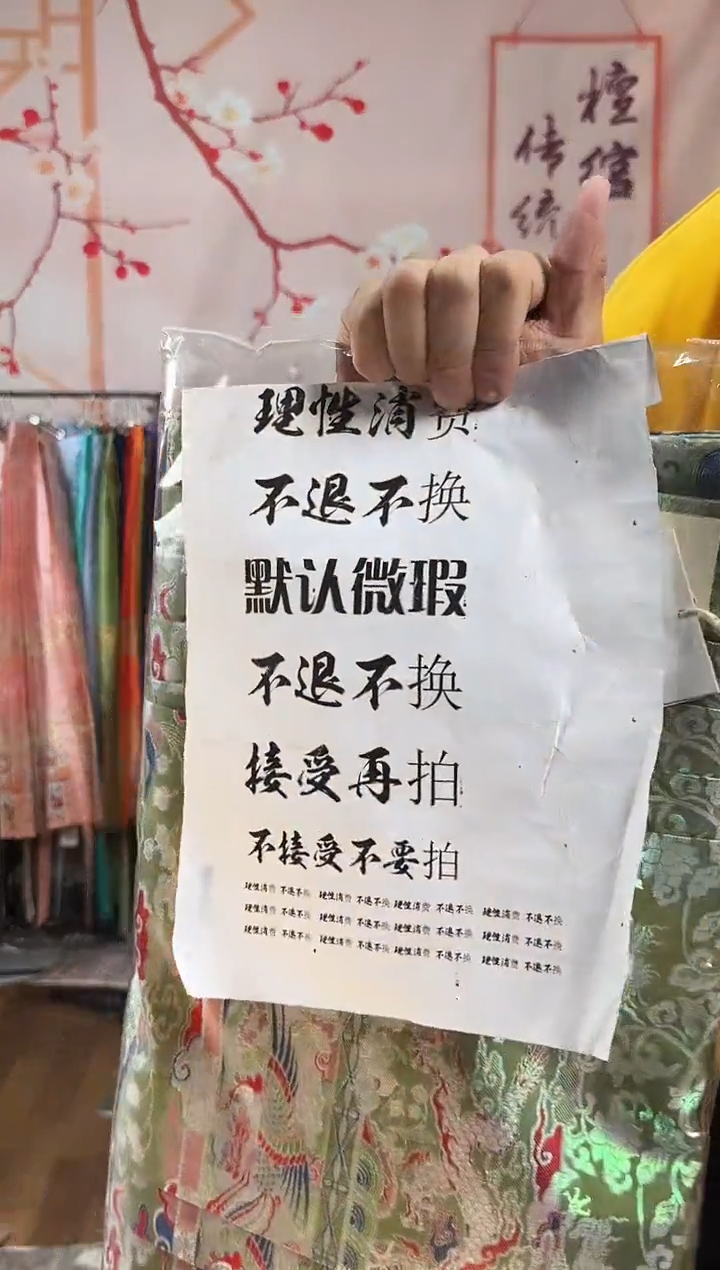 传统
理性消费
不退不换
默认微瑕
不退不换
接受再拍
不接受不要拍
理性消费 不退不换 理性消费 不退不换 理性消费 不退不换 理性消费 不退不换
理性消费 不退不换 理性消费 不退不换 理性消费 不退不换 理性消费 不退不换
理性消费 不退不换 理性消费 不退不换 理性消费 不退不换 理性消费 不退不换